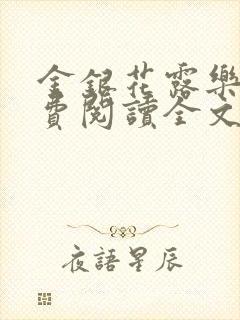 金銀花露樂
費閱讀全文
夜語星辰